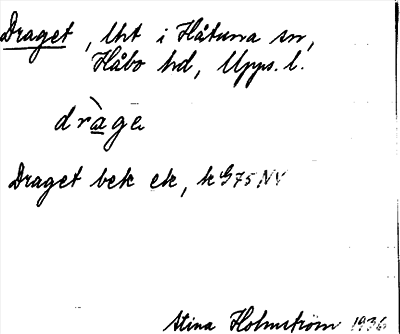 Draget, lht i Håtuna sn,
Håbo hd, Upps. l.
dràgε
Draget bek ek, k G75 NV
Stina Holmström 1936